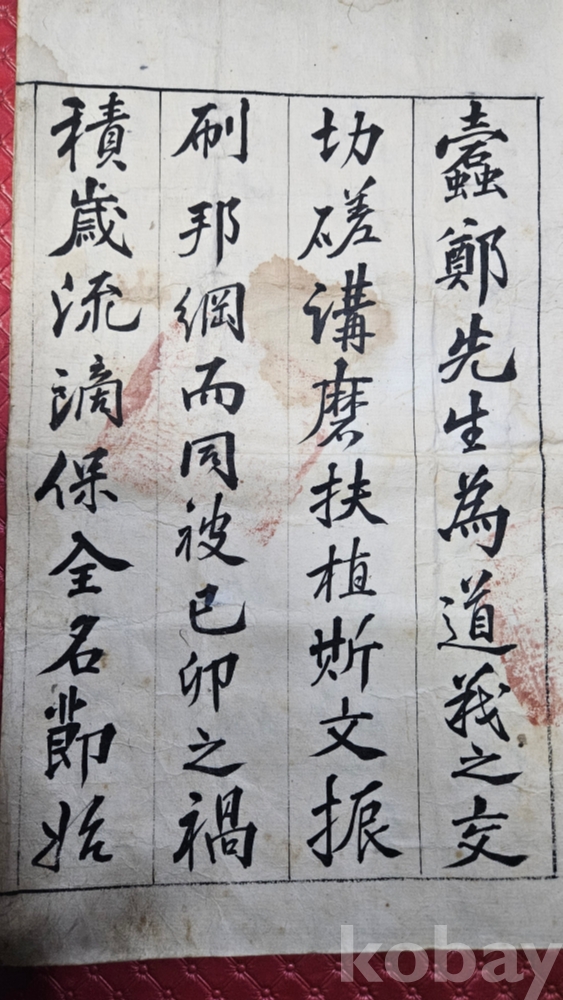 蠹鄭先生為道義之交
切磋講磨扶植斯文振
刷邦綱而同被己卯之禍
積歲流謫保全名節始
kobay